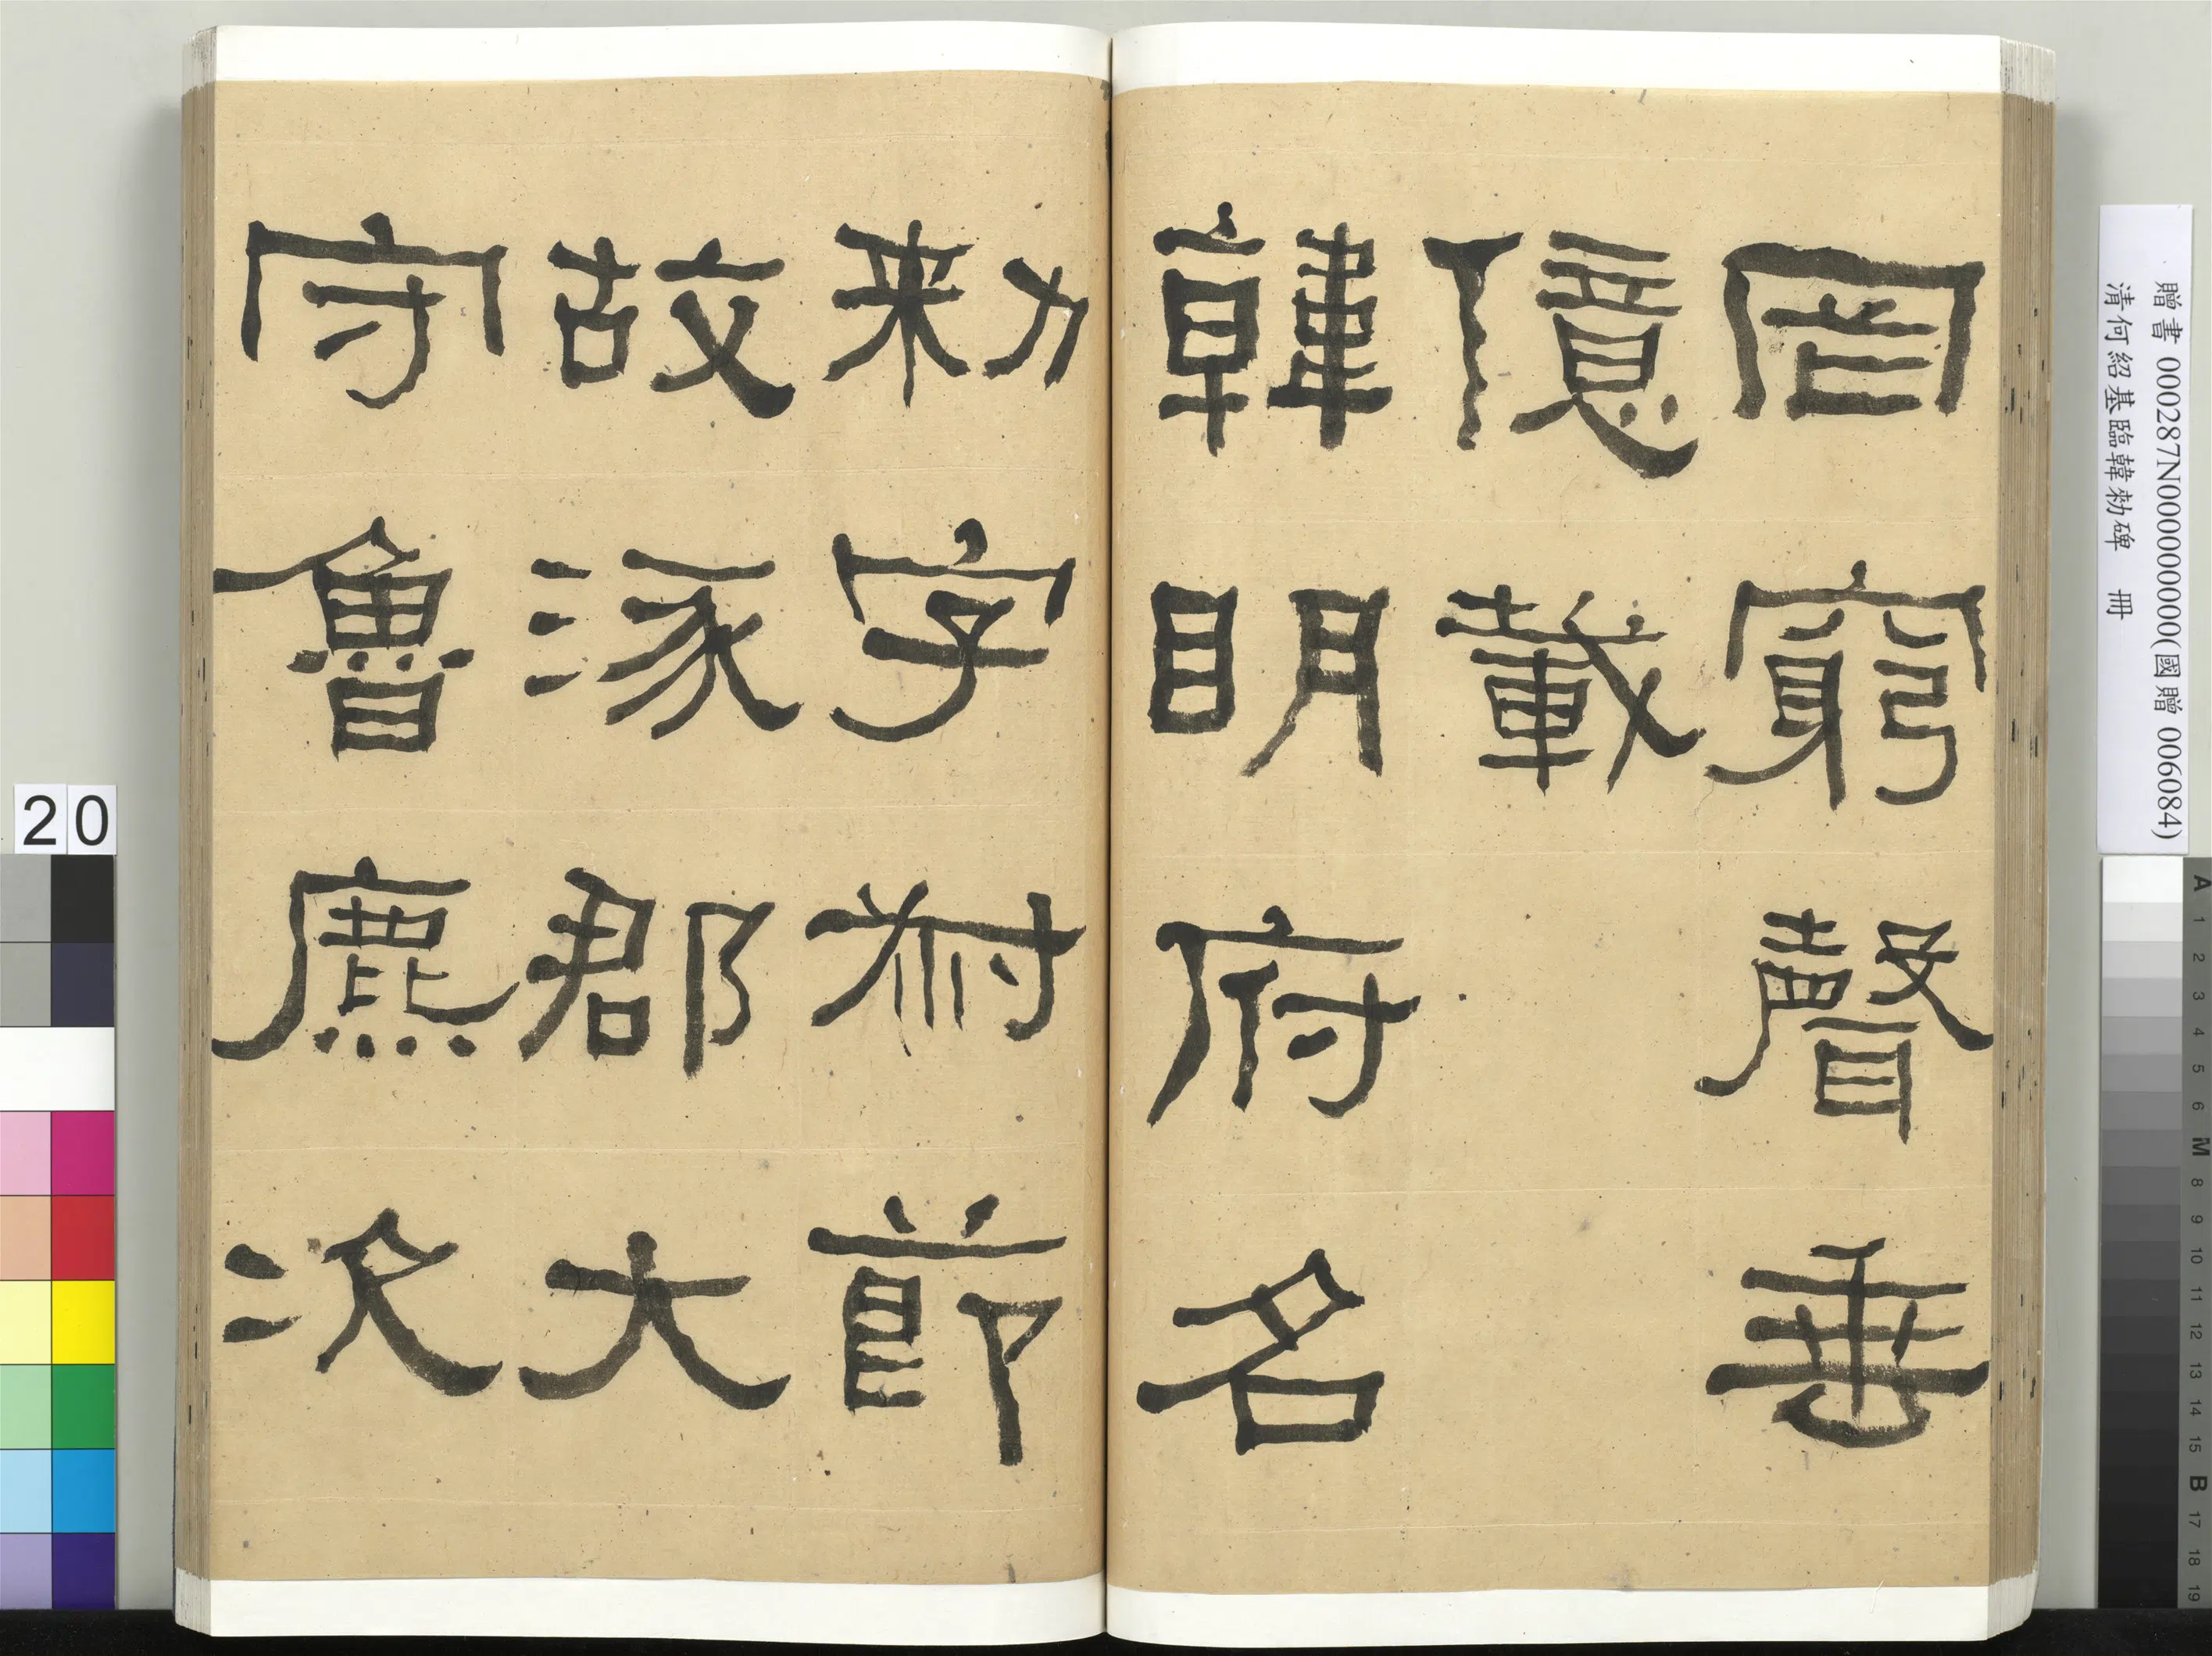 罔窮聲垂
億載
韓明府名
勑字叔節
故涿郡大
守魯麃次
贈書 000287N000000000(國贈 006084)
清何紹基臨韓勑碑 冊
20
A 1 2 3 4 5 6 M 8 9 10 11 12 13 14 15 B 17 18 19